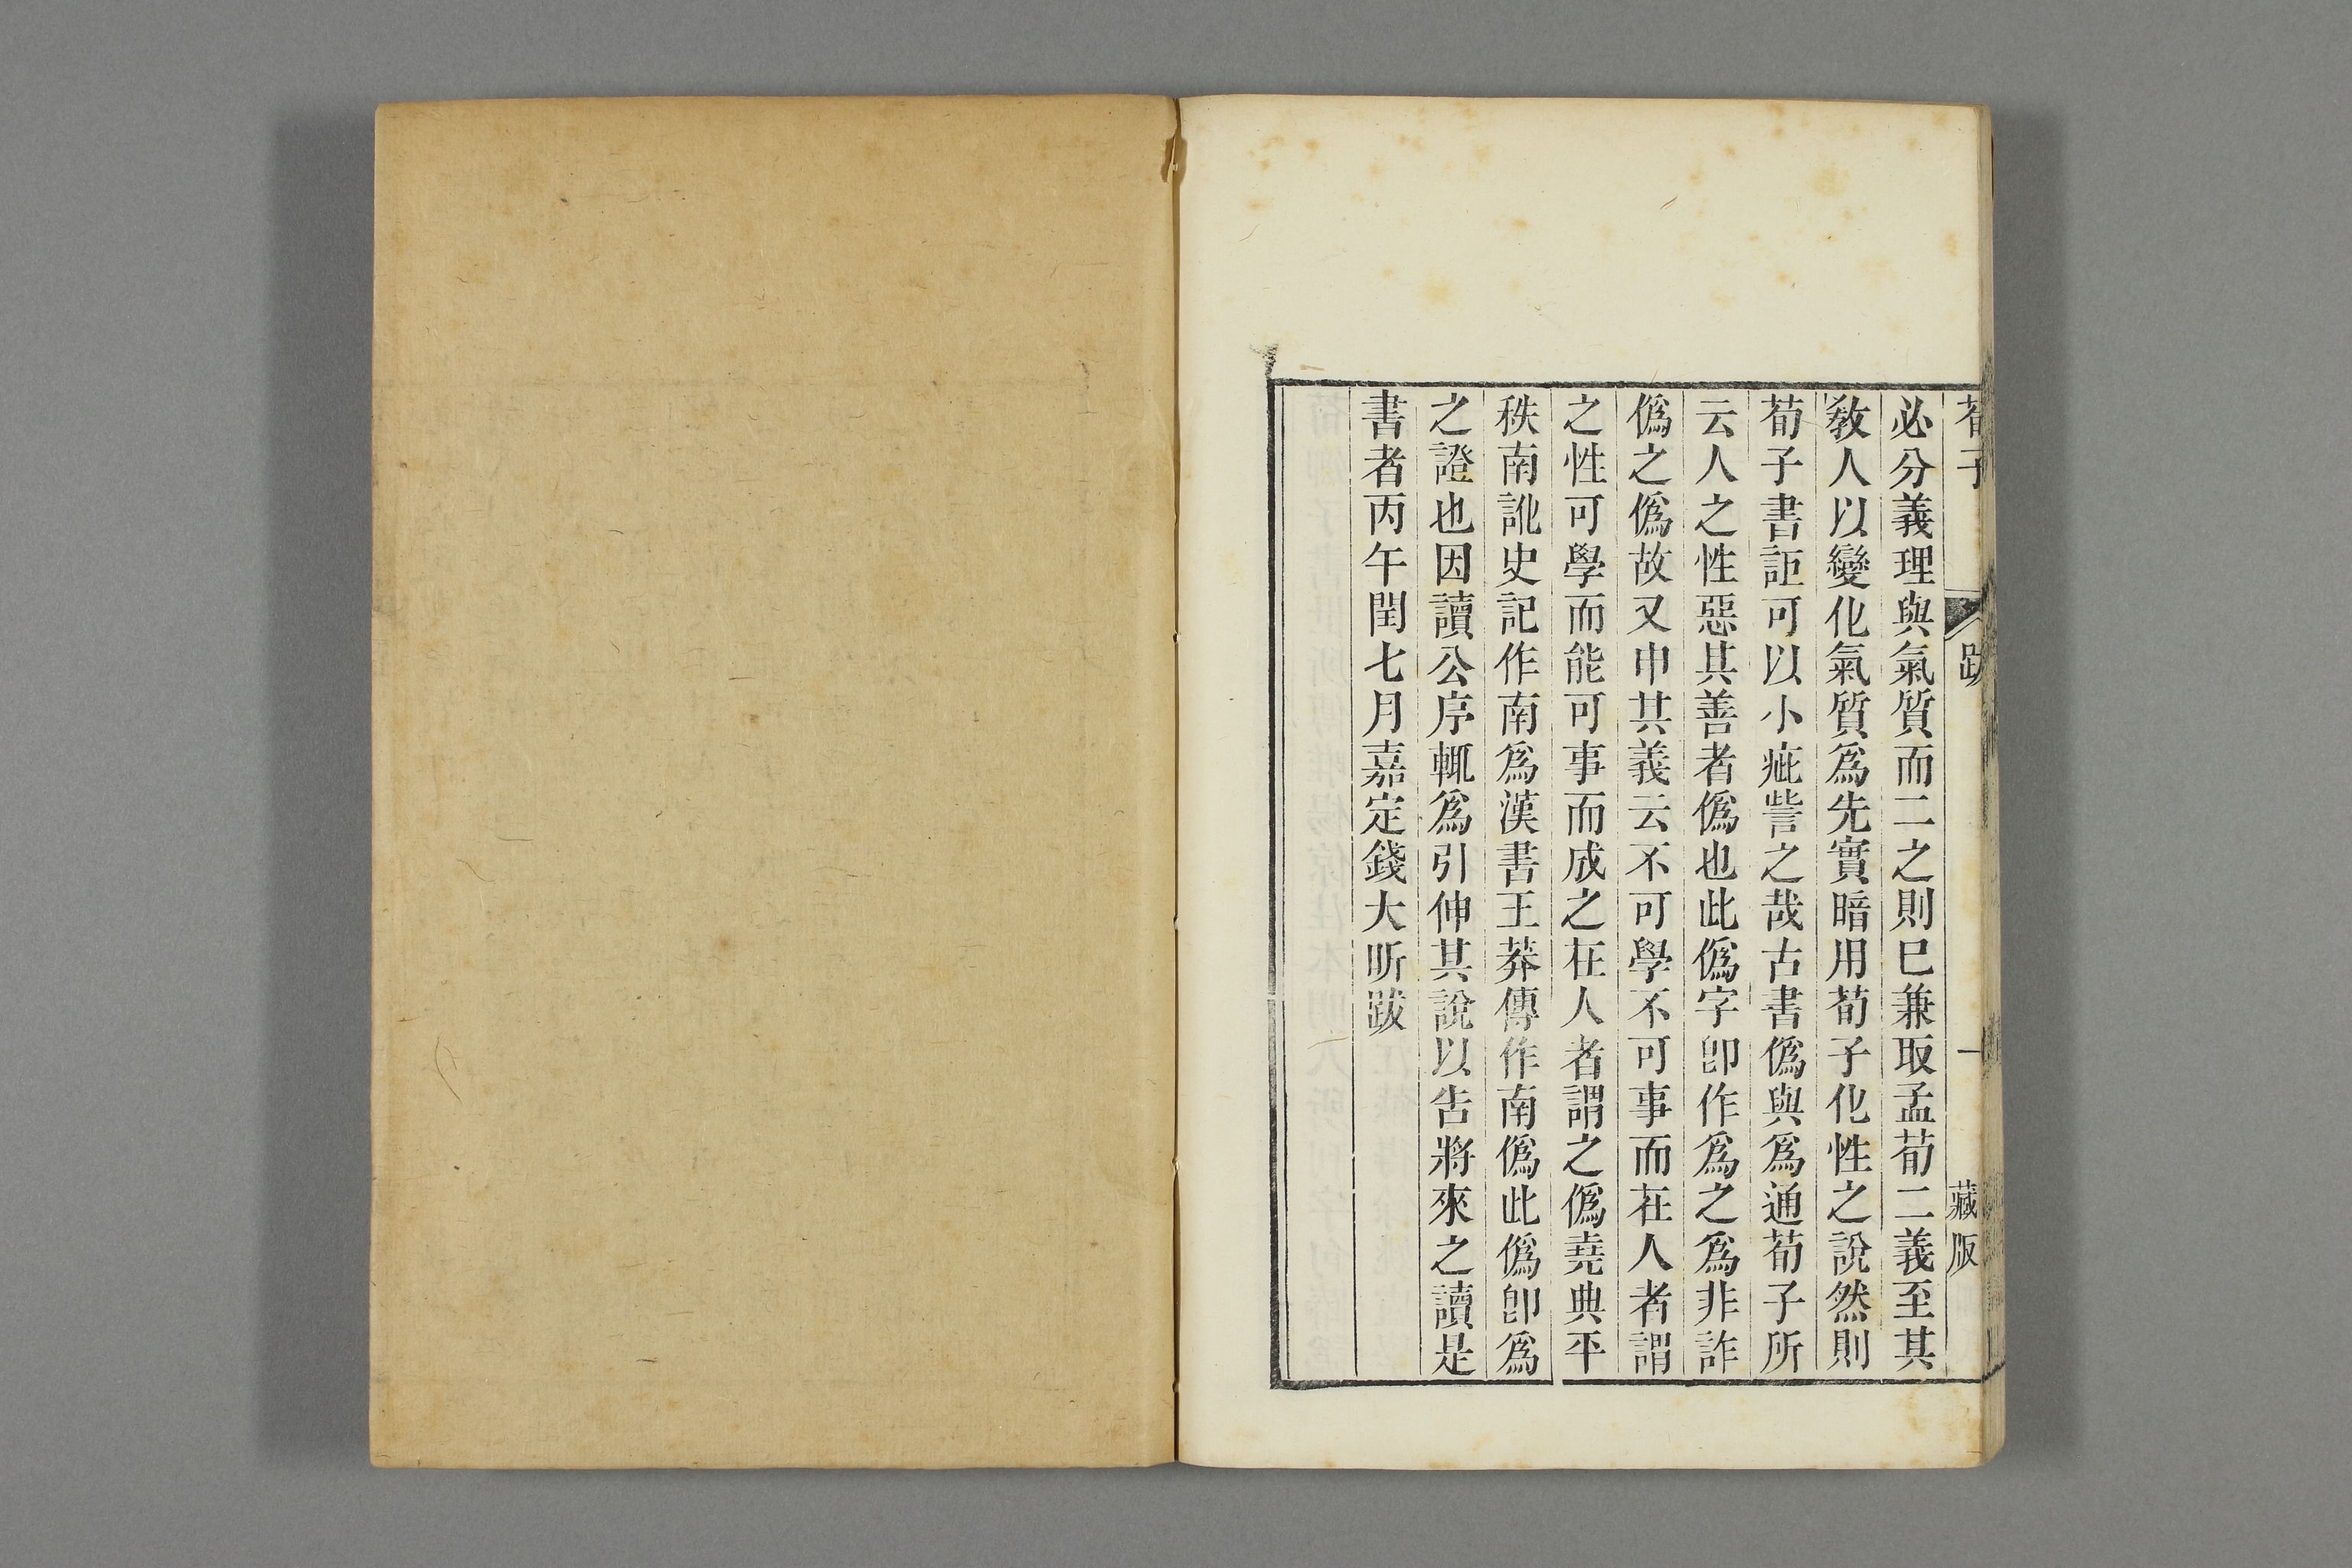 荀子　跋　一　藏版
必分義理與氣質而二之則巳兼取孟荀二義至其
敎人以變化氣質爲先實暗用荀子化性之說然則
荀子書詎可以小疵訾之哉古書僞與爲通荀子所
云人之性惡其善者僞也此僞字卽作爲之爲非詐
僞之僞故又申其義云不可學不可事而在人者謂
之性可學而能可事而成之在人者謂之僞堯典平
秩南訛史記作南爲漢書王莽傳作南僞此僞卽爲
之證也因讀公序輒爲引伸其說以告將來之讀是
書者丙午閏七月嘉定錢大昕跋